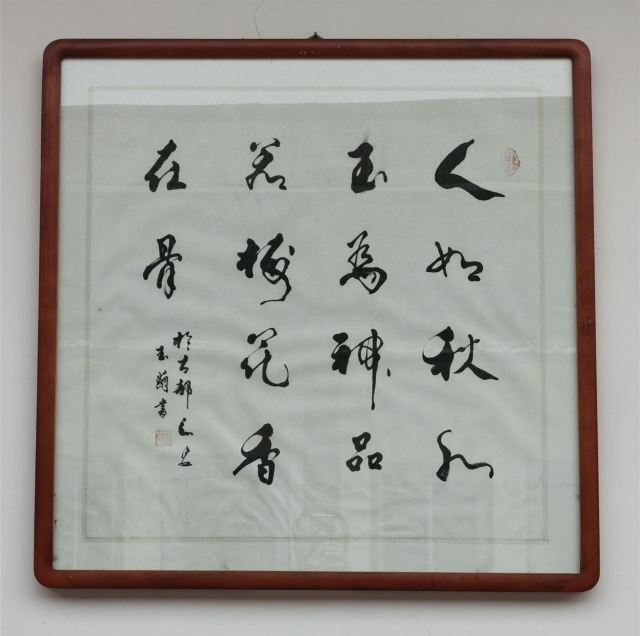 人如秋水
玉為神品
若梅花香
在骨
於古都长安
玉蘭書